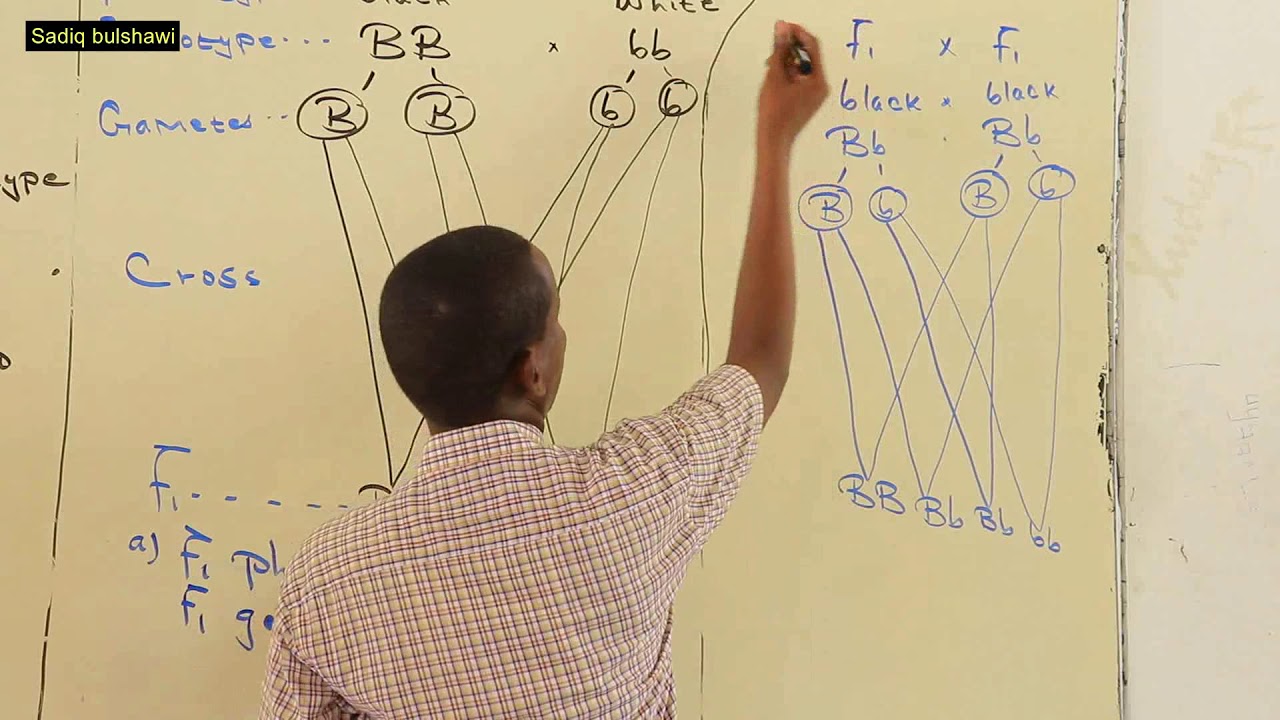 Sadiq bulshawi
White
BB × bb
Gametes B B b b
ype
Cross
F1
a) F1
F1
F1 × F1
black × black
Bb Bb
B b B b
BB Bb Bb bb